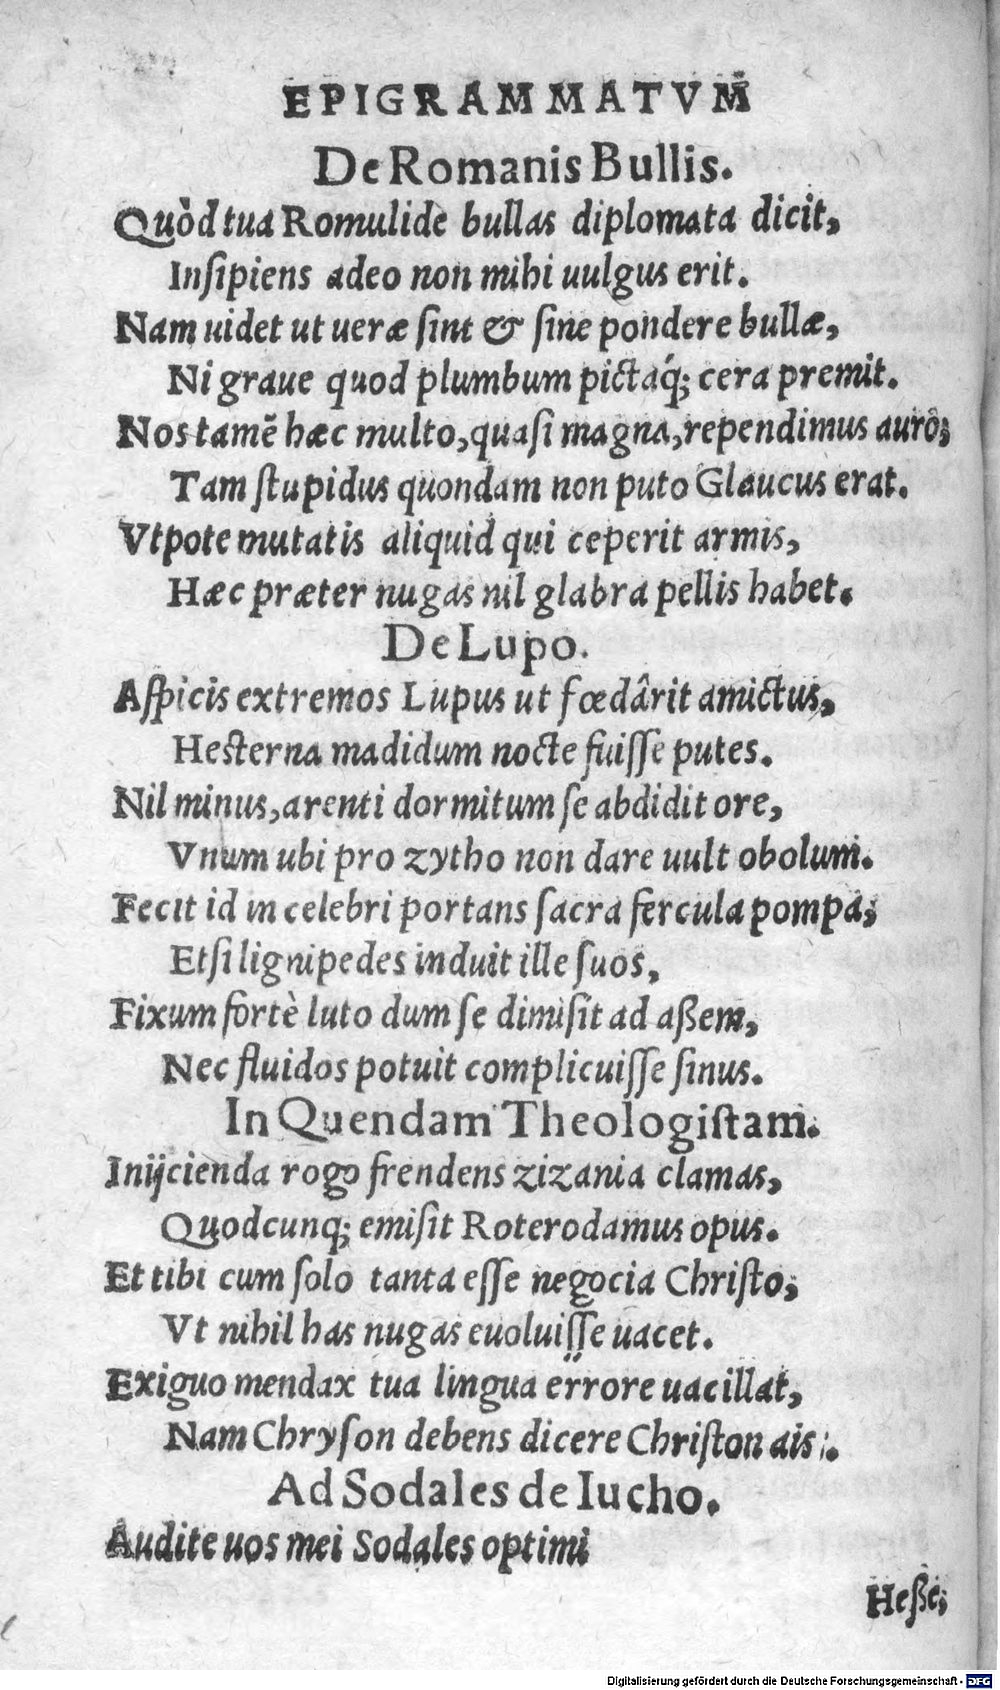 EPIGRAMMATVM
De Romanis Bullis.
Quòd tua Romulide bullas diplomata dicit,
Insipiens adeo non mihi uulgus erit.
Nam uidet ut ueræ sint & sine pondere bullæ,
Ni graue quod plumbum pictáq; cera premit.
Nos tamẽ hæc multo, quasi magna, rependimus auro,
Tam stupidus quondam non puto Glaucus erat.
Vtpote mutatis aliquid qui ceperit armis,
Hæc præter nugas nil glabra pellis habet.
De Lupo.
Aspicis extremos Lupus ut fœdârit amictus,
Hesterna madidum nocte fuisse putes.
Nil minus, arenti dormitum se abdidit ore,
Vnum ubi pro zytho non dare uult obolum.
Fecit id in celebri portans sacra fercula pompa,
Etsi lignipedes induit ille suos,
Fixum fortè luto dum se dimisit ad aßem,
Nec fluidos potuit complicuisse sinus.
In Quendam Theologistam.
Inijcienda rogo frendens zizania clamas,
Quodcunq; emisit Roterodamus opus.
Et tibi cum solo tanta esse negocia Christo,
Vt nihil has nugas euoluisse uacet.
Exiguo mendax tua lingua errore uacillat,
Nam Chryson debens dicere Christon ais.
Ad Sodales de Iucho.
Audite uos mei Sodales optimi
Heße,
Digitalisierung gefördert durch die Deutsche Forschungsgemeinschaft - DFG